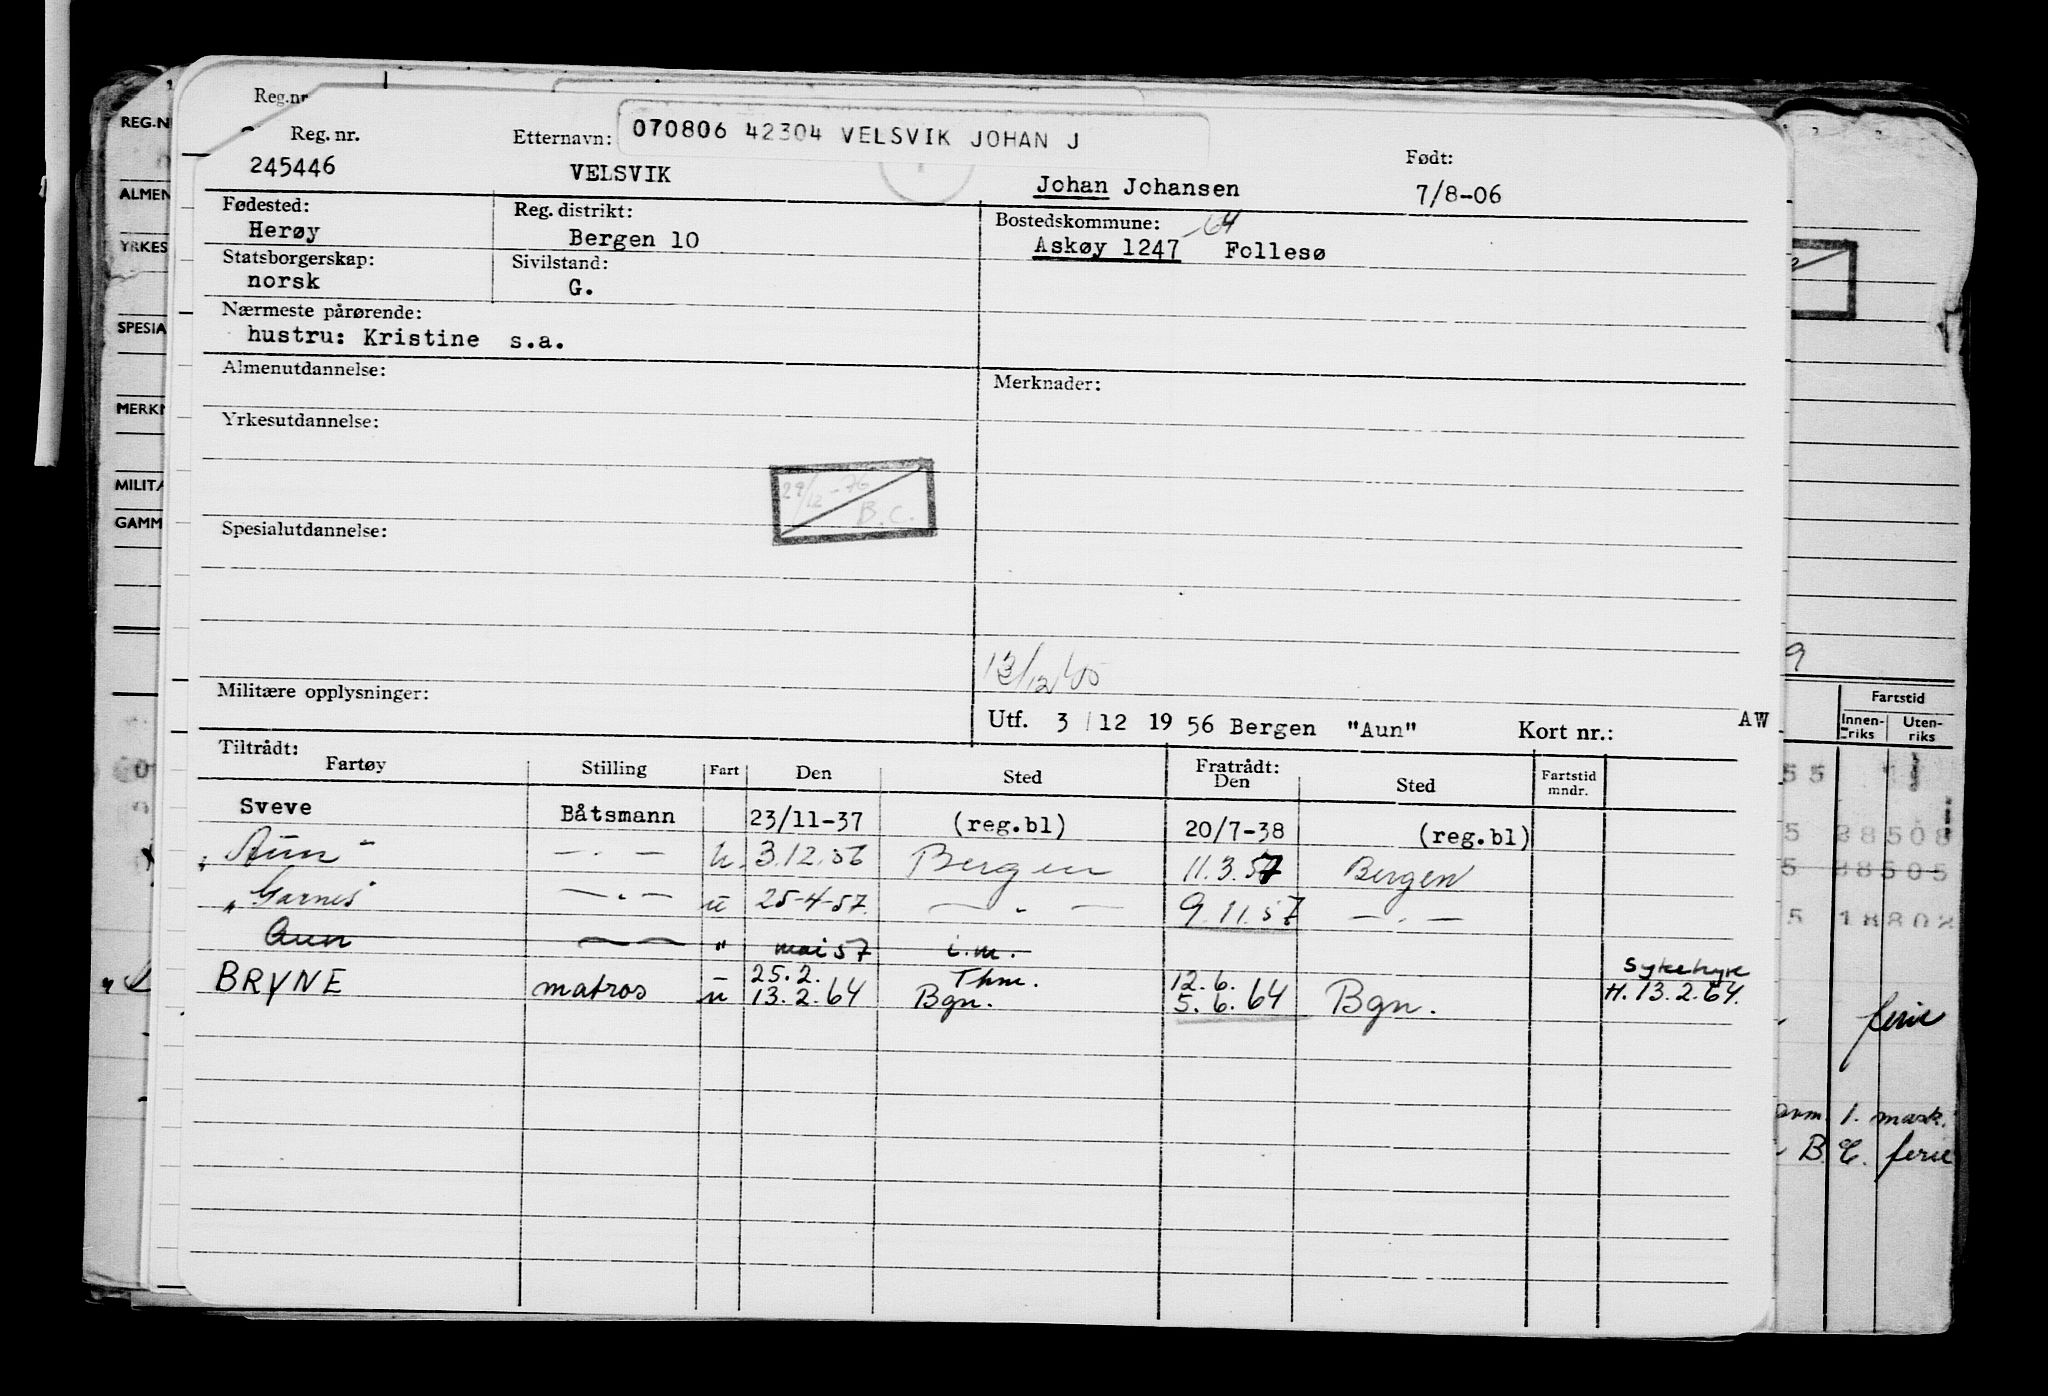 Reg.nr
Reg. nr. Etternavn: 070806 42304 VELSVIK JOHAN J Født:
245446 VELSVIK Johan Johansen 7/8-06
Fødested: Reg. distrikt: Bostedskommune: -64
Herøy Bergen 10 Askøy 1247 Follesø
Statsborgerskap: Sivilstand:
norsk G.
Nærmeste pårørende:
hustru: Kristine s.a.
Almenutdannelse: Merknader:
Yrkesutdannelse:
29/12-76
B.C.
Spesialutdannelse:
Militære opplysninger:
Utf. 3/12 1956 Bergen "Aun" Kort nr.: AW
Tiltrådt: Fratrådt:
Fartøy Stilling Fart Den Sted Den Sted Fartstid mndr.
Sveve Båtsmann 23/11-37 (reg.bl) 20/7-38 (reg.bl)
"Aun" — . — u. 3.12.56 Bergen 11.3.57 Bergen
"Garnes — . — u 25-4-57. — . — 9.11.57 — . —
Aun — " mai 57 i.m.
25.2. Thm. 12.6. Sykehyre
BRYNE matros u 13.2.64 Bgn. 5.6.64 Bgn. H. 13.2.64.
REG.N
ALMEN
YRKES
SPESIA
MERKN
MILITA
GAMM
9
Fartstid
Innen-riks Uten-riks
55
5 38508
5 38505
5 18802
ferie
1. mask.
B. C. ferie